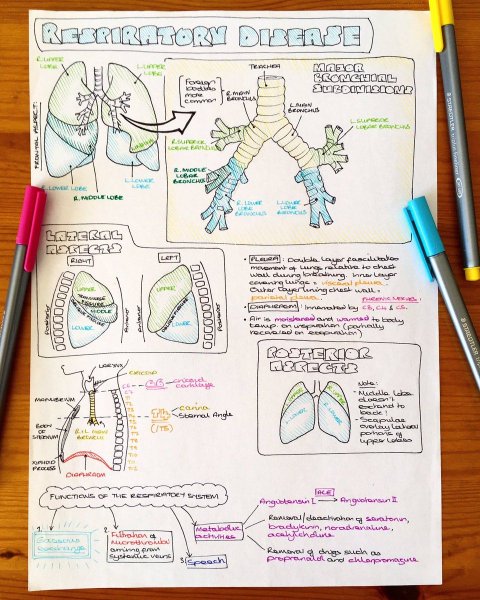 RESPIRATORY DISEASE
R.UPPER LOBE
L.UPPER LOBE
FRONTAL ASPECT:
LINGULA
R.LOWER LOBE
L.LOWER LOBE
R.MIDDLE LOBE
MAJOR
BRONCHIAL
SUBDIVISIONS
TRACHEA
Foreign
bodies
more
common
R.MAIN
BRONCHUS
L.MAIN
BRONCHUS
R.SUPERIOR
LOBAR BRONCHUS
L.SUPERIOR
LOBAR BRONCHUS
R.MIDDLE
LOBAR
BRONCHUS
R.LOWER
LOBE
BRONCHUS
L.LOWER
LOBE
BRONCHUS
LATERAL
ASPECTS
RIGHT
LEFT
UPPER
UPPER
MIDDLE
LOWER
LOWER
• PLEURA: Double layer facilitates
movement of lungs relative to chest
wall during breathing. Inner layer
covering lungs = visceral pleura.
Outer layer lining chest wall =
parietal pleura.
PHRENIC NERVE!
• DIAPHRAGM: Innervated by C3, C4 & C5.
• Air is moistened and warmed to body
temp. on inspiration (partially
recovered on expiration)
POSTERIOR
ASPECTS
Note:
• Middle lobe
doesn't
extend to
back!
• Scapulae
overlay lateral
portions of
upper lobes
LARYNX
CRICOID
C6 = cricoid
cartilage
MANUBRIUM
BODY
OF
STERNUM
XIPHOID
PROCESS
R&L MAIN
BRONCHI
DIAPHRAGM
T4 = carina
Sternal Angle
(/T5)
FUNCTIONS OF THE RESPIRATORY SYSTEM
1.
Gaseous
exchange
2.
Filtration of
microthrombi
coming from
systemic veins
3. Speech
Metabolic
activities
ACE
Angiotensin I → Angiotensin II
Removal/deactivation of serotonin,
bradykinin, noradrenaline,
acetylcholine
Removal of drugs such as
propranolol and chlorpromazine
STAEDTLER
STAEDTLER